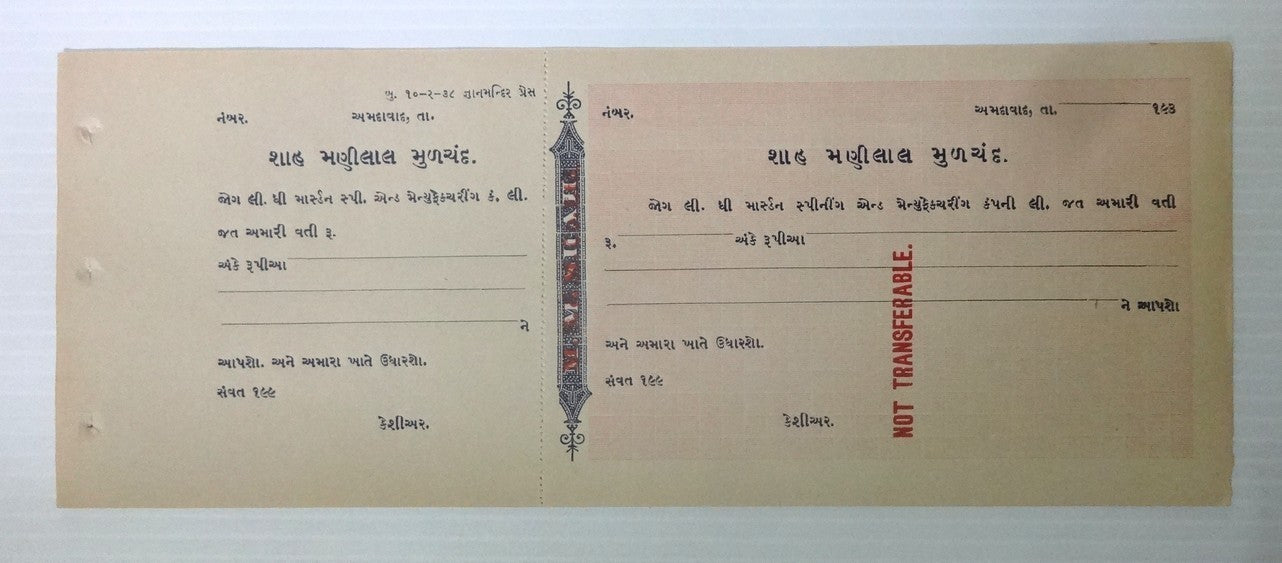 બુ. ૧૦-૨-૩૮ જ્ઞાનમન્દિર પ્રેસ
નંબર. અમદાવાદ, તા.
શાહ મણીલાલ મુળચંદ.
જોગ લી. ધી માર્સ્ડન સ્પી. એન્ડ મેન્યુફેકચરીંગ કં. લી.
જત અમારી વતી રૂ.
અંકે રૂપીઆ
ને
આપશો. અને અમારા ખાતે ઉધારશો.
સંવત ૧૯૯
કેશીઅર.
નંબર. અમદાવાદ, તા. ૧૯૩
શાહ મણીલાલ મુળચંદ.
જોગ લી. ધી માર્સ્ડન સ્પીનીંગ એન્ડ મેન્યુફેકચરીંગ કંપની લી. જત અમારી વતી
રૂ. અંકે રૂપીઆ
ને આપશો
અને અમારા ખાતે ઉધારશો.
સંવત ૧૯૯
કેશીઅર.
NOT TRANSFERABLE.